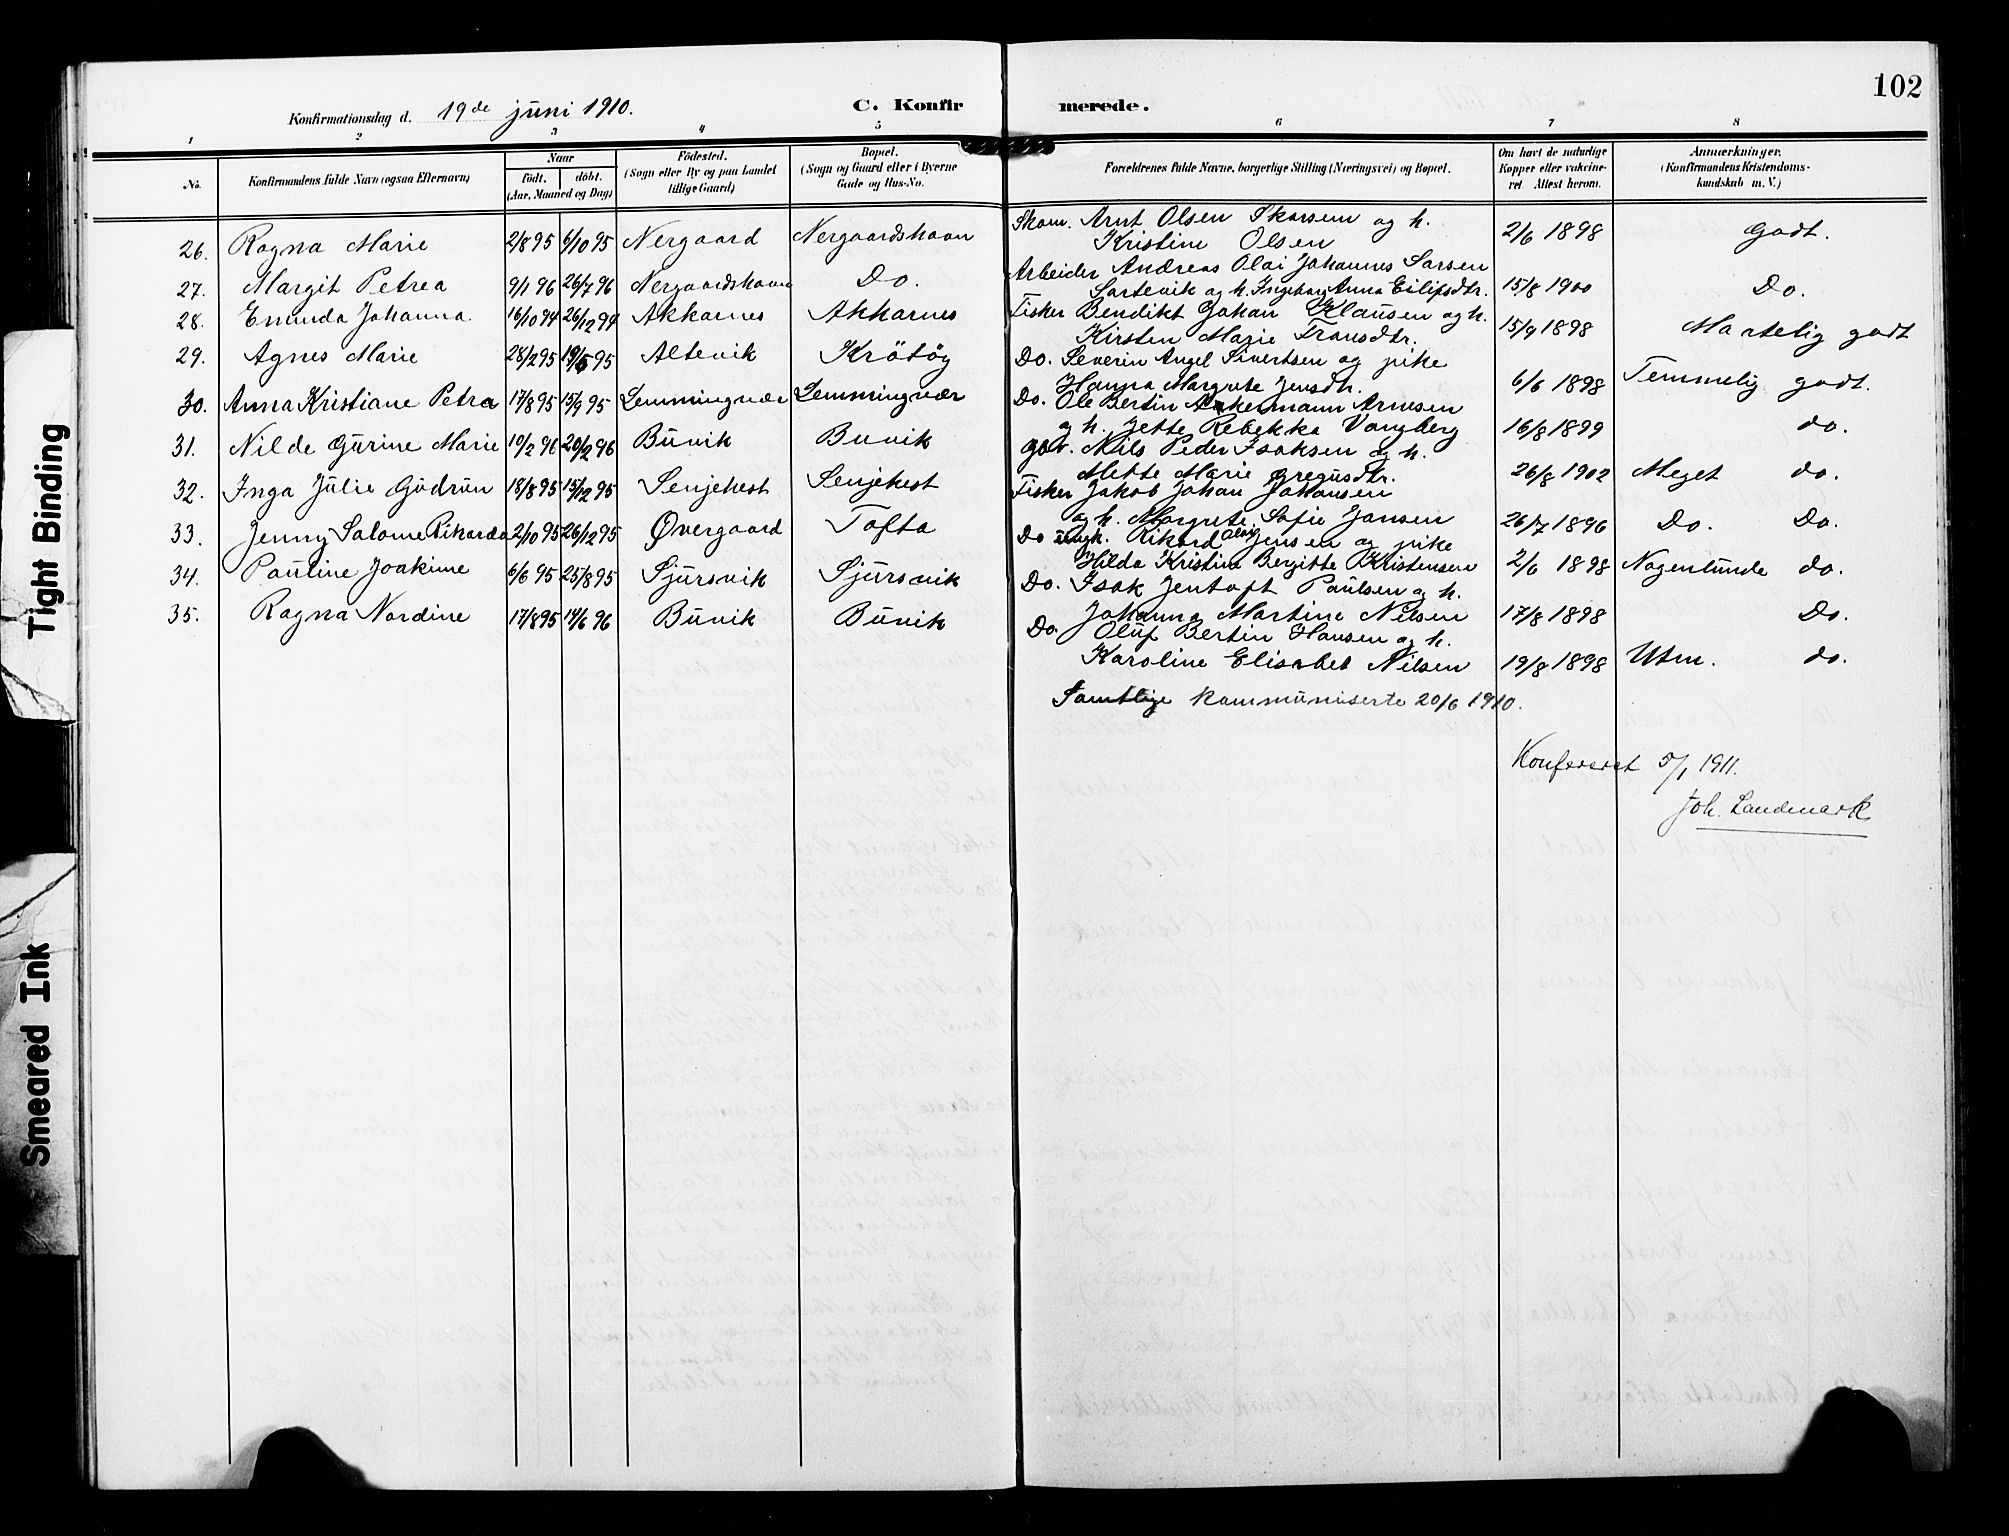 102
Konfirmationsdag d. 19de juni 1910. C. Konfirmerede.
1 2 3 4 5 6 7 8
No. Konfirmandens fulde Navn (ogsaa Efternavn) Naar født. døbt. (Aar, Maaned og Dag) Fødested. (Sogn eller By og paa Landet tillige Gaard) Bopæl. (Sogn og Gaard eller i Byerne Gade og Hus-No. Forældrenes fulde Navne, borgerlige Stilling (Næringsvei) og Bopæl. Om havt de naturlige Kopper eller vakcineret. Attest herom. Anmærkninger. (Konfirmandens Kristendomskundskab m. V.)
26. Ragna Marie 2/8 95 6/10 95 Nergaard Nergaardshavn Skom. Arnt Olsen Skarsem og h. Kristine Olsen 2/6 1898 Godt.
27. Margit Petrea 9/1 96 26/7 96 Nergaardshavn Do. Arbeider Andreas Olai Johannes Larsen Sartevik og h. Ingeborg Anna Eilifsdtr. 15/8 1900 Do.
28. Emunda Johanna 16/10 94 26/12 94 Akkarnes Akkarnes Fisker Bendikt Johan Klausen og h. Kirsten Marie Fransdtr. 15/9 1898 Martelig godt
29. Agnes Marie 28/2 95 19/5 95 Altevik Krøtøy Do. Severin Angel Sivertsen og pike Hanna Margrete Jensdtr. 6/6 1898 Temmelig godt.
30. Anna Kristiane Petra 17/8 95 15/9 95 Lemmingvær Lemmingvær Do. Ole Bertin Akermann Arnesen og h. Jette Rebekka Vangberg 16/8 1899 do.
31. Nilde Gurine Marie 10/2 96 20/2 96 Buvik Buvik gbr. Nils Peder Isaksen og h. Mette Marie Gregusdtr. 26/8 1902 Meget do.
32. Inga Julie Gudrun 18/8 95 15/12 95 Senjehest Senjehest Fisker Jakob Johan Johansen og h. Margrete Sofie Jansen 26/7 1896 Do. Do.
33. Jenny Salome Rikarda 2/10 95 26/12 95 Øvergaard Tofta Do ungk. Rikard Olai Jensen og pike Hilda Kristine Bergitte Kristensen 2/6 1898 Nogenlunde do.
34. Pauline Joakime 6/6 95 25/8 95 Sjursvik Sjursvik Do. Isak Jentoft Paulsen og h. Johanna Martine Nilsen 17/8 1898 Do.
35. Ragna Nordine 17/8 95 14/6 96 Buvik Buvik Do Oluf Bertin Hansen og h. Karoline Elisabet Nilsen 19/8 1898 Utm. do.
Samtlige kommuniserte 20/6 1910.
Konfereret 5/1 1911.
Joh. Landmark
Tight Binding
Smeared Ink